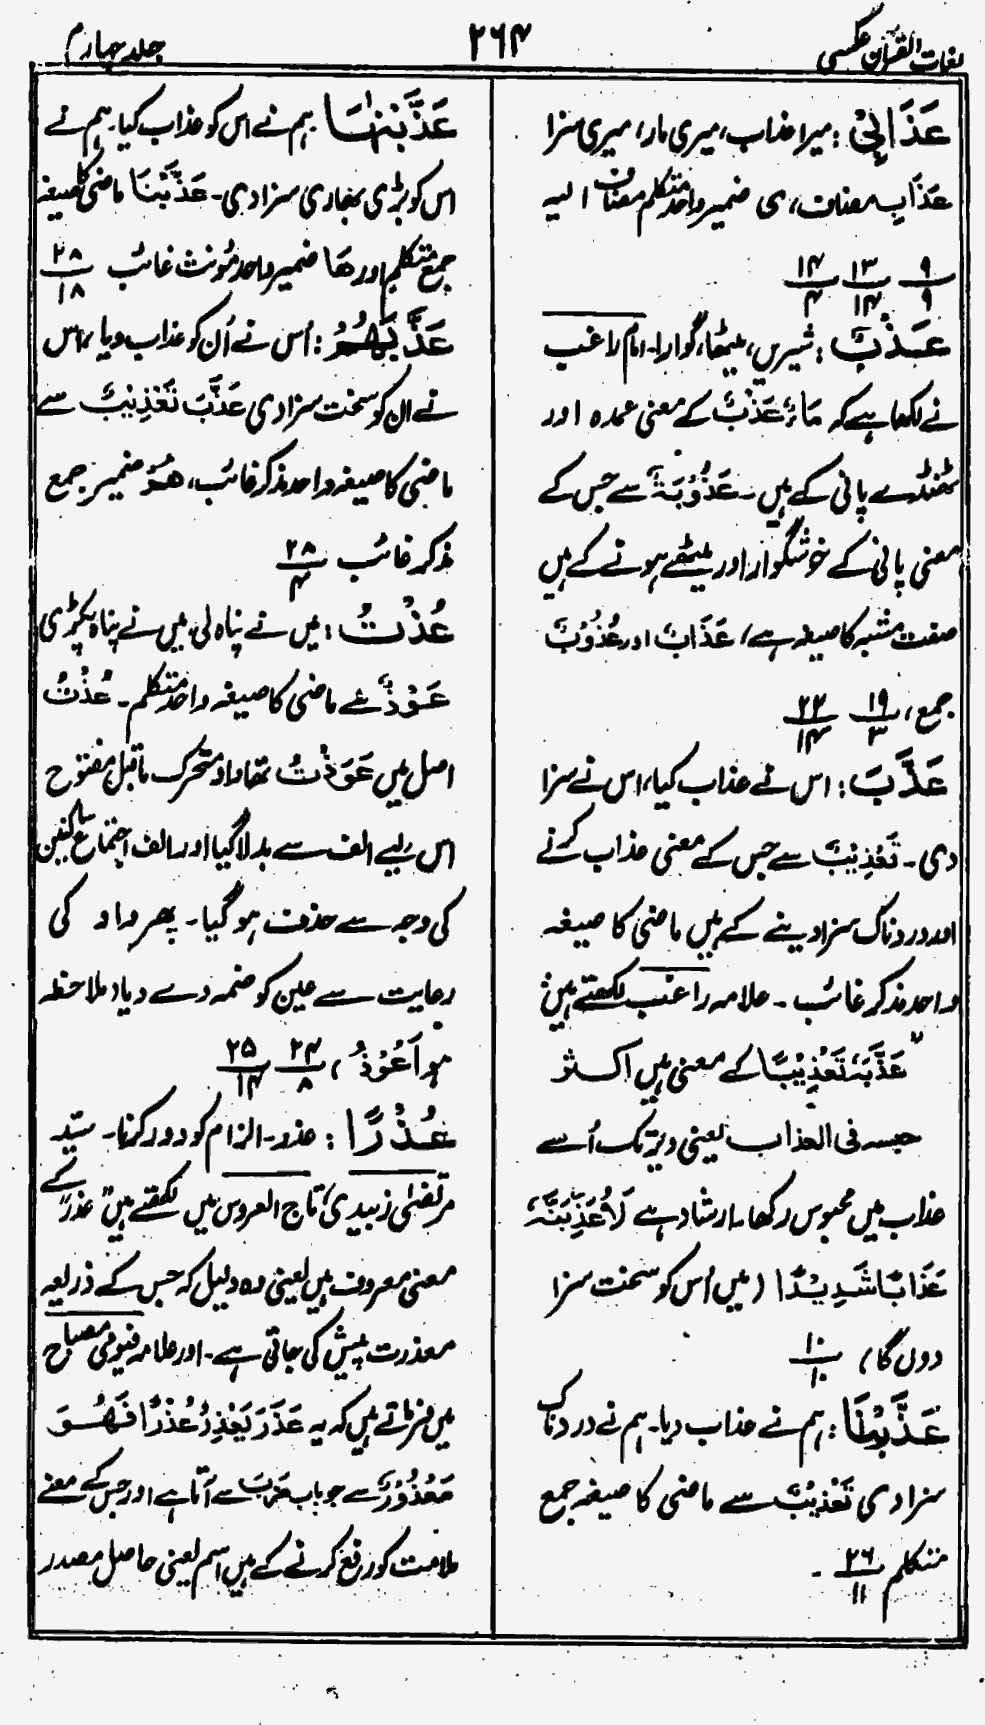 لغات القرآن عکسی
۲۶۴
جلد چہارم
عَذَابِیْ : میرا عذاب، میری مار، میری سزا
عَذَابِ مضاف، ی ضمیر واحد متکلم مضاف الیہ
۹/۹ ۱۳/۱۴ ۱۴/۴
عَذْبٌ : شیریں، میٹھا، گوارا۔ امام راغب
نے لکھا ہے کہ مَاءٌ عَذْبٌ کے معنی عمدہ اور
ٹھنڈے پانی کے ہیں۔ عَذُوْبَۃٌ سے جس کے
معنی پانی کے خوشگوار اور میٹھے ہونے کے ہیں
صفت مشبہ کا صیغہ ہے، عَذَابٌ اور عُذُوْبٌ
جمع، ۱۹/۳ ۲۲/۱۴
عَذَّبَ : اس نے عذاب کیا، اس نے سزا
دی۔ تَعْذِیْبٌ سے جس کے معنی عذاب کرنے
اور دردناک سزا دینے کے ہیں ماضی کا صیغہ
واحد مذکر غائب ۔ علامہ راغب لکھتے ہیں
"عَذَّبَہٗ تَعْذِیْبًا کے معنی ہیں اکثر
حبسہ فی العذاب یعنی دیر تک اُسے
عذاب میں محبوس رکھا۔ ارشاد ہے لَاُعَذِّبَنَّہٗ
عَذَابًا شَدِیْدًا (میں اُس کو سخت سزا
دوں گا) ۱۰/۱۰
عَذَّبْنَا : ہم نے عذاب دیا۔ ہم نے دردناک
سزا دی تَعْذِیْبٌ سے ماضی کا صیغہ جمع
متکلم ۲۶/۱۱ ۔
عَذَّبْنٰہَا ہم نے اس کو عذاب کیا۔ ہم نے
اس کو بڑی بھاری سزا دی۔ عَذَّبْنَا ماضی کا صیغہ
جمع متکلم اور ھَا ضمیر واحد مؤنث غائب ۲۸/۱۸
عَذَّبَھُمْ : اُس نے اُن کو عذاب دیا، اس
نے ان کو سخت سزا دی عَذَّبَ تَعْذِیْبٌ سے
ماضی کا صیغہ واحد مذکر غائب، ھُمْ ضمیر جمع
مذکر غائب ۲۸/۴
عُذْتُ : میں نے پناہ لی، میں نے پناہ پکڑی
عَوْذٌ سے ماضی کا صیغہ واحد متکلم ۔ عُذْتُ
اصل میں عَوَذْتُ تھا واو متحرک ماقبل مفتوح
اس لیے الف سے بدلا گیا اور الف اجتماع ساکنین
کی وجہ سے حذف ہو گیا۔ پھر واو کی
رعایت سے عین کو ضمہ دے دیا، ملاحظہ
ہو اَعُوْذُ، ۲۴/۸ ۲۵/۱۴
عُذْرًا : عذر۔ الزام کو دور کرنا۔ سیّد
مرتضیٰ زبیدی، تاج العروس میں لکھتے ہیں "عذر" کے
معنی معروف ہیں یعنی وہ دلیل کہ جس کے ذریعہ
معذرت پیش کی جاتی ہے۔ اور علامہ فیومی مصباح
میں فرماتے ہیں کہ یہ عَذَرَ یَعْذِرُ عُذْرًا فَھُوَ
مَعْذُوْرٌ سے جو باب ضَرَبَ سے آتا ہے اور جس کے معنے
ملامت کو رفع کرنے کے ہیں اسم یعنی حاصل مصدر